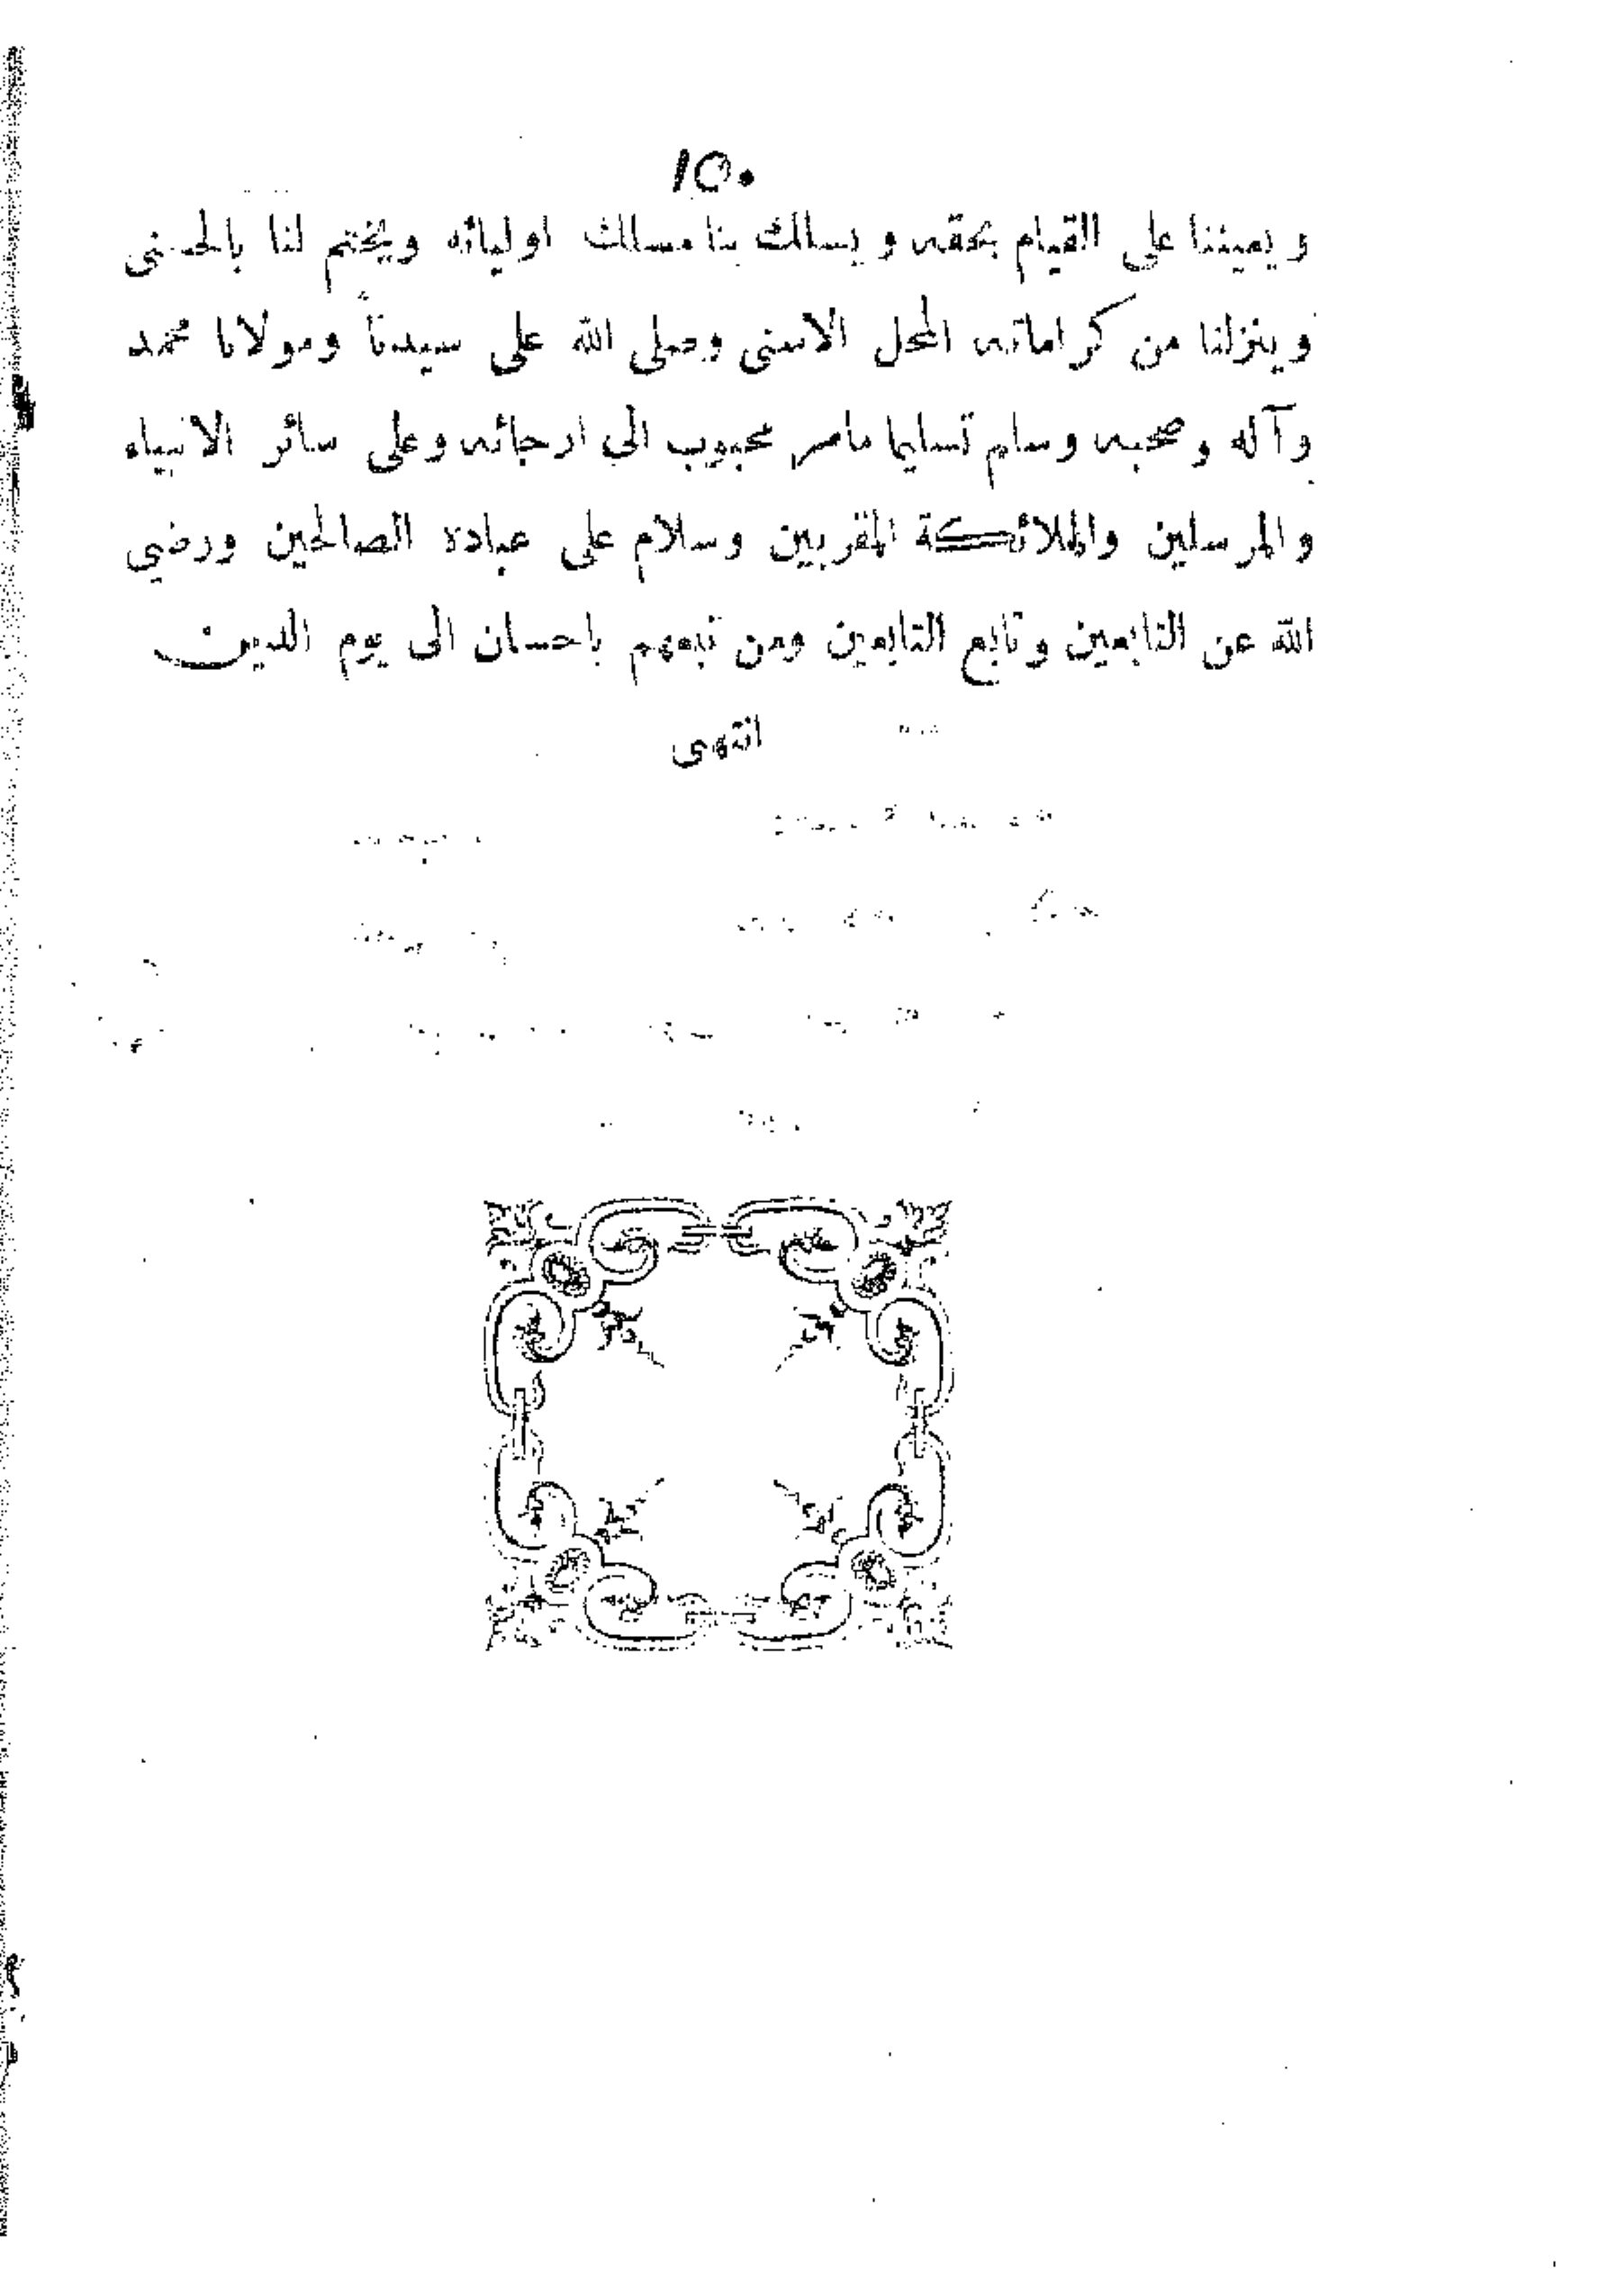 ١٥٠
ويعيننا على القيام بحقه ويسلك بنا مسلك اوليائه ويختم لنا بالحسنى
وينزلنا من كراماته المحل الاسنى وصلى الله على سيدنا ومولانا محمد
وآله وصحبه وسلم تسليما ماسر محبوب الى ارجائه وعلى سائر الانبياء
والمرسلين والملائكة المقربين وسلام على عباده الصالحين ورضي
الله عن التابعين وتابع التابعين ومن تبعهم باحسان الى يوم الدين
انتهى